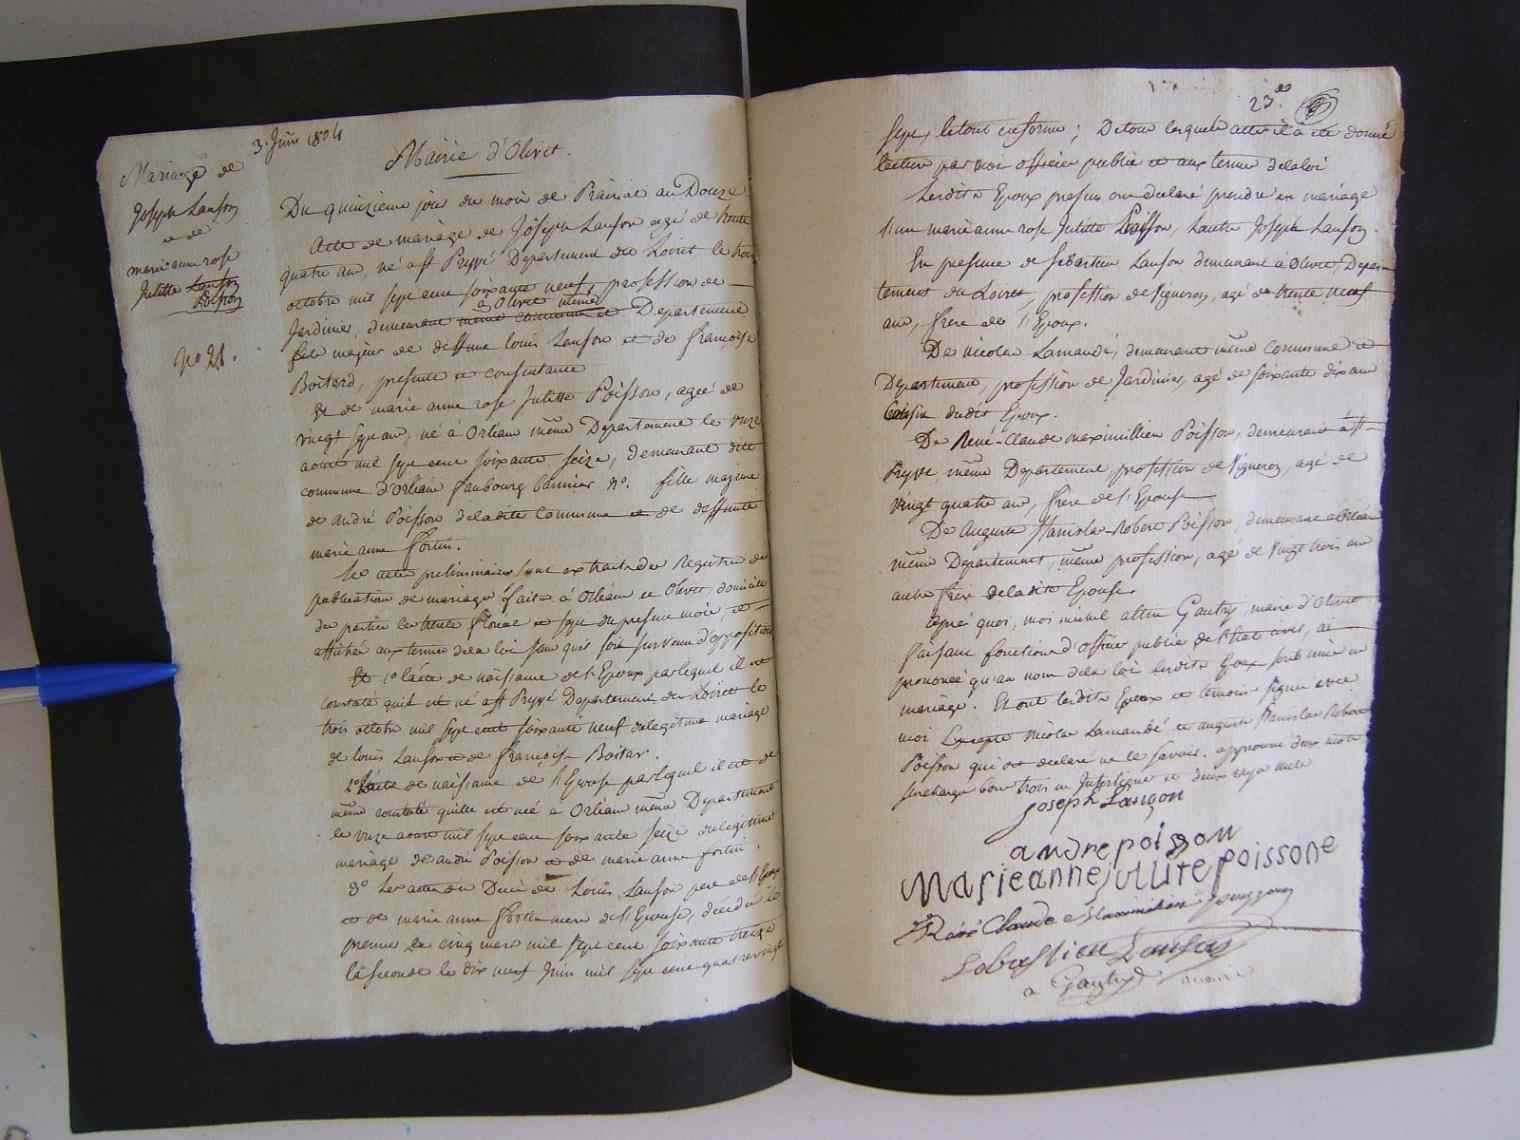 3. Juin 1804
Mariage de
Joseph Lanson
et de
marie anne rose
Julitte Lanson
Poisson
No 21.
Mairie d'Olivet.
Du quinzieme jour du mois de Prairial an Douze
Acte de mariage de Joseph Lanson agé de trente
quatre ans, né a St Pryvé Departement du Loiret le trois
octobre mil sept cent soixante neuf, profession de
à Olivet même
Jardinier, demeurant même commune et Departement
fils majeur de deffunt louis Lanson et de françoise
Boitard, presente et consentante
Et de marie anne rose Julitte Poisson, agée de
vingt sept ans, né à Orléans même Departement le onze
aout mil sept cent soixante seize, demeurant dite
commune d'Orléans faubourg Bannier No. fille majeure
de andré Poisson de la dite Commune et de deffunte
marie anne fortin.
les actes preliminaires sont extraits des Registres de
publication de mariage faite à Orléans et Olivet, domicile
des parties les trente floreal et sept du present mois, et
affichés aux termes de la loi sans qu'il soit survenu d'opposition
1o l'acte de naissance de l'Epoux par lequel il est
constaté qu'il est né a St Pryvé Departement du Loiret le
trois octobre mil sept cent soixante neuf de legitime mariage
de louis Lanson et de françoise Boitar.
2o l'acte de naissance de l'Epouse par lequel il est de
même constaté qu'elle est née à Orléans même Departement
le onze aout mil sept cent soixante seize de legitime
mariage de andré Poisson et de marie anne fortin.
3o Les actes de Decès de Louis Lanson pere de l'Epoux
et de marie anne fortin mere de l'Epouse, décédés le
premier le cinq mars mil sept cent soixante treize
la seconde le dix neuf Juin mil sept cent quatre vingt
23
sept, le tout en forme; De tous lesquels actes il a été donné
lecture par moi officier public et aux termes de la loi
Lesdits Epoux presens ont declaré prendre en mariage
l'un marie anne rose Julitte Poisson, l'autre Joseph Lanson.
En presence de Sebastien Lanson demeurant à Olivet, Depar-
tement du Loiret, profession de Vigneron, agé de trente neuf
ans, frere de l'Epoux.
De nicolas Lamandé, demeurant même Commune et
Departement, profession de Jardinier, agé de soixante dix ans
Cousin dudit Epoux.
De René-Claude maximillien Poisson, demeurant à St
Pryvé, même Departement, profession de Vigneron, agé de
vingt quatre ans, frere de l'Epouse
De Auguste Stanislas-Robert Poisson, demeurant à Orléans
même Departement, même profession, agé de vingt trois ans
autre frere de la dite Epouse.
après quoi, moi michel alten Gautry, maire d'Olivet
faisant fonctions d'officier public de l'état civil, ai
prononcé qu'au nom de la loi lesdits Epoux sont unis en
mariage. Et ont lesdits Epoux et temoins signé avec
moi Excepté Nicolas Lamandé et auguste Stanislas Robert
Poisson qui ont declaré ne le savoir. approuvé deux mots
surchargés bon trois en Interligne et deux rayés nuls
joseph Lançon
andre poisson
Marieanne jullite poissone
René Claude
Sebastien Lanson
Gautry
maire